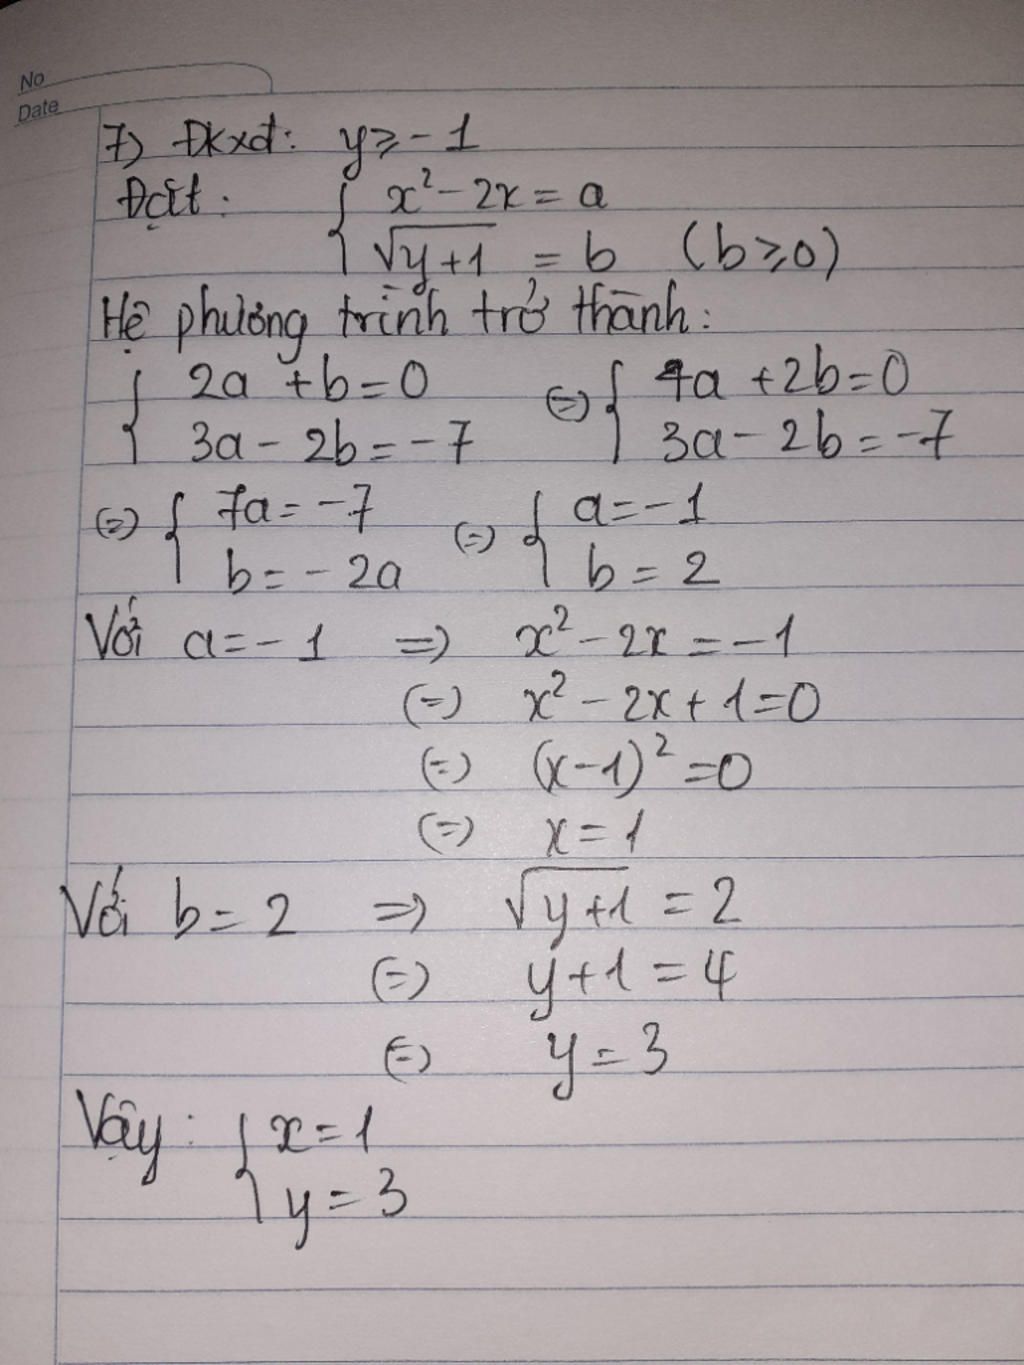 No
Date
7) Đkxđ: y ≥ -1
Đặt: { x² - 2x = a
√(y+1) = b (b ≥ 0)
Hệ phương trình trở thành:
{ 2a + b = 0 (=) { 4a + 2b = 0
3a - 2b = -7 3a - 2b = -7
(=) { 7a = -7 (=) { a = -1
b = -2a b = 2
Với a = -1 => x² - 2x = -1
(=) x² - 2x + 1 = 0
(=) (x-1)² = 0
(=) x = 1
Với b = 2 => √(y+1) = 2
(=) y + 1 = 4
(=) y = 3
Vậy: { x = 1
y = 3